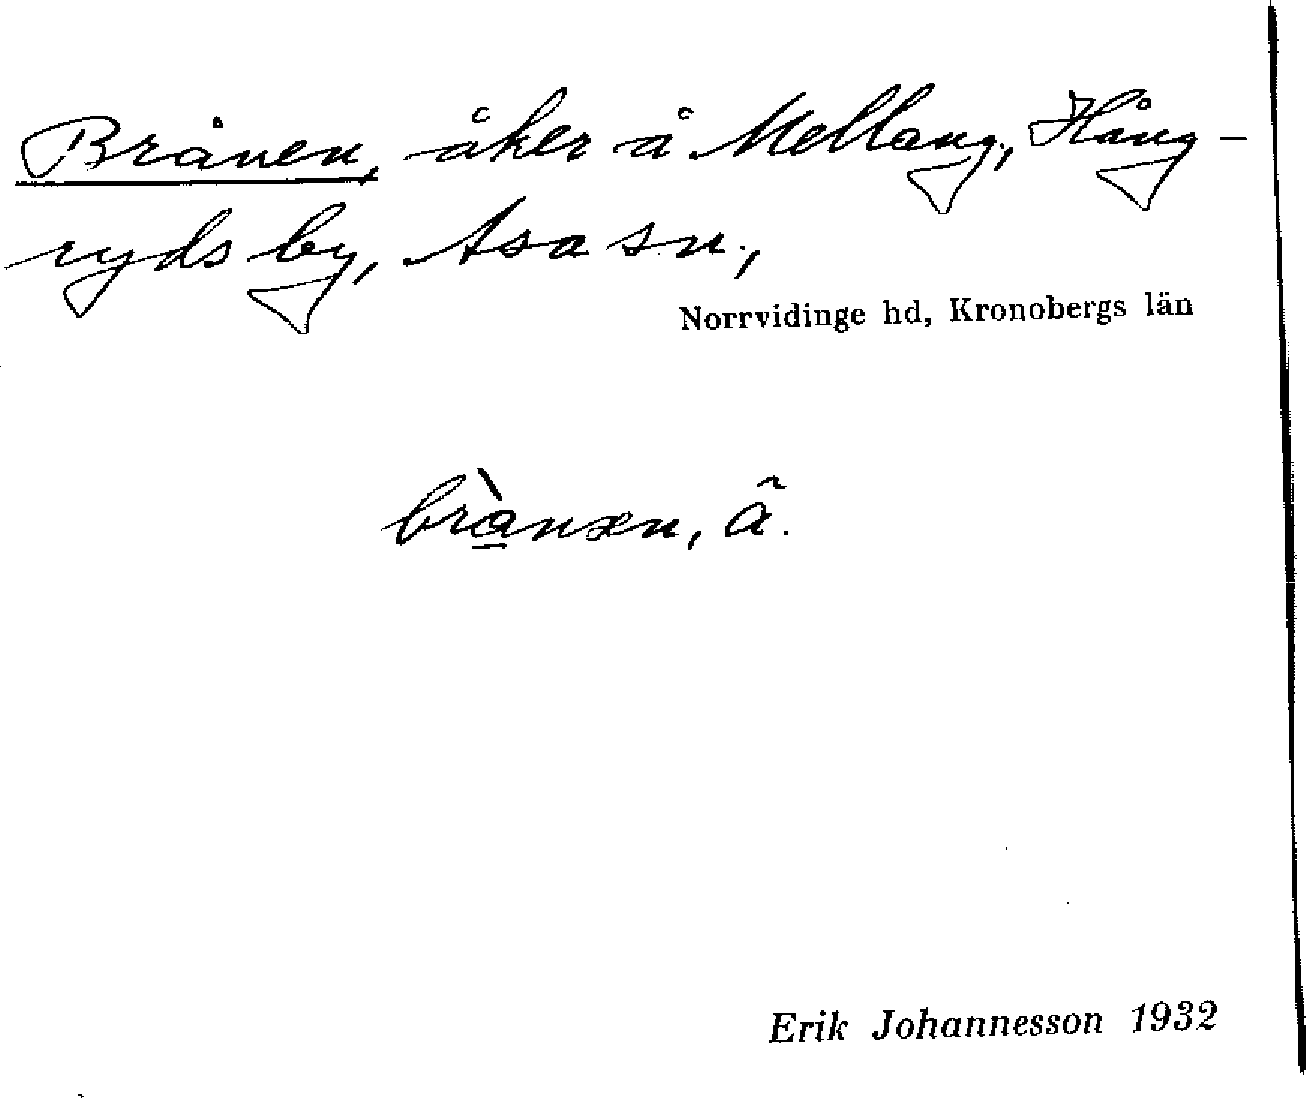 Brånen, åker å Mellang., Häng-
ryds by, Asa sn.,
Norrvidinge hd, Kronobergs län
brànæn, â.
Erik Johannesson 1932